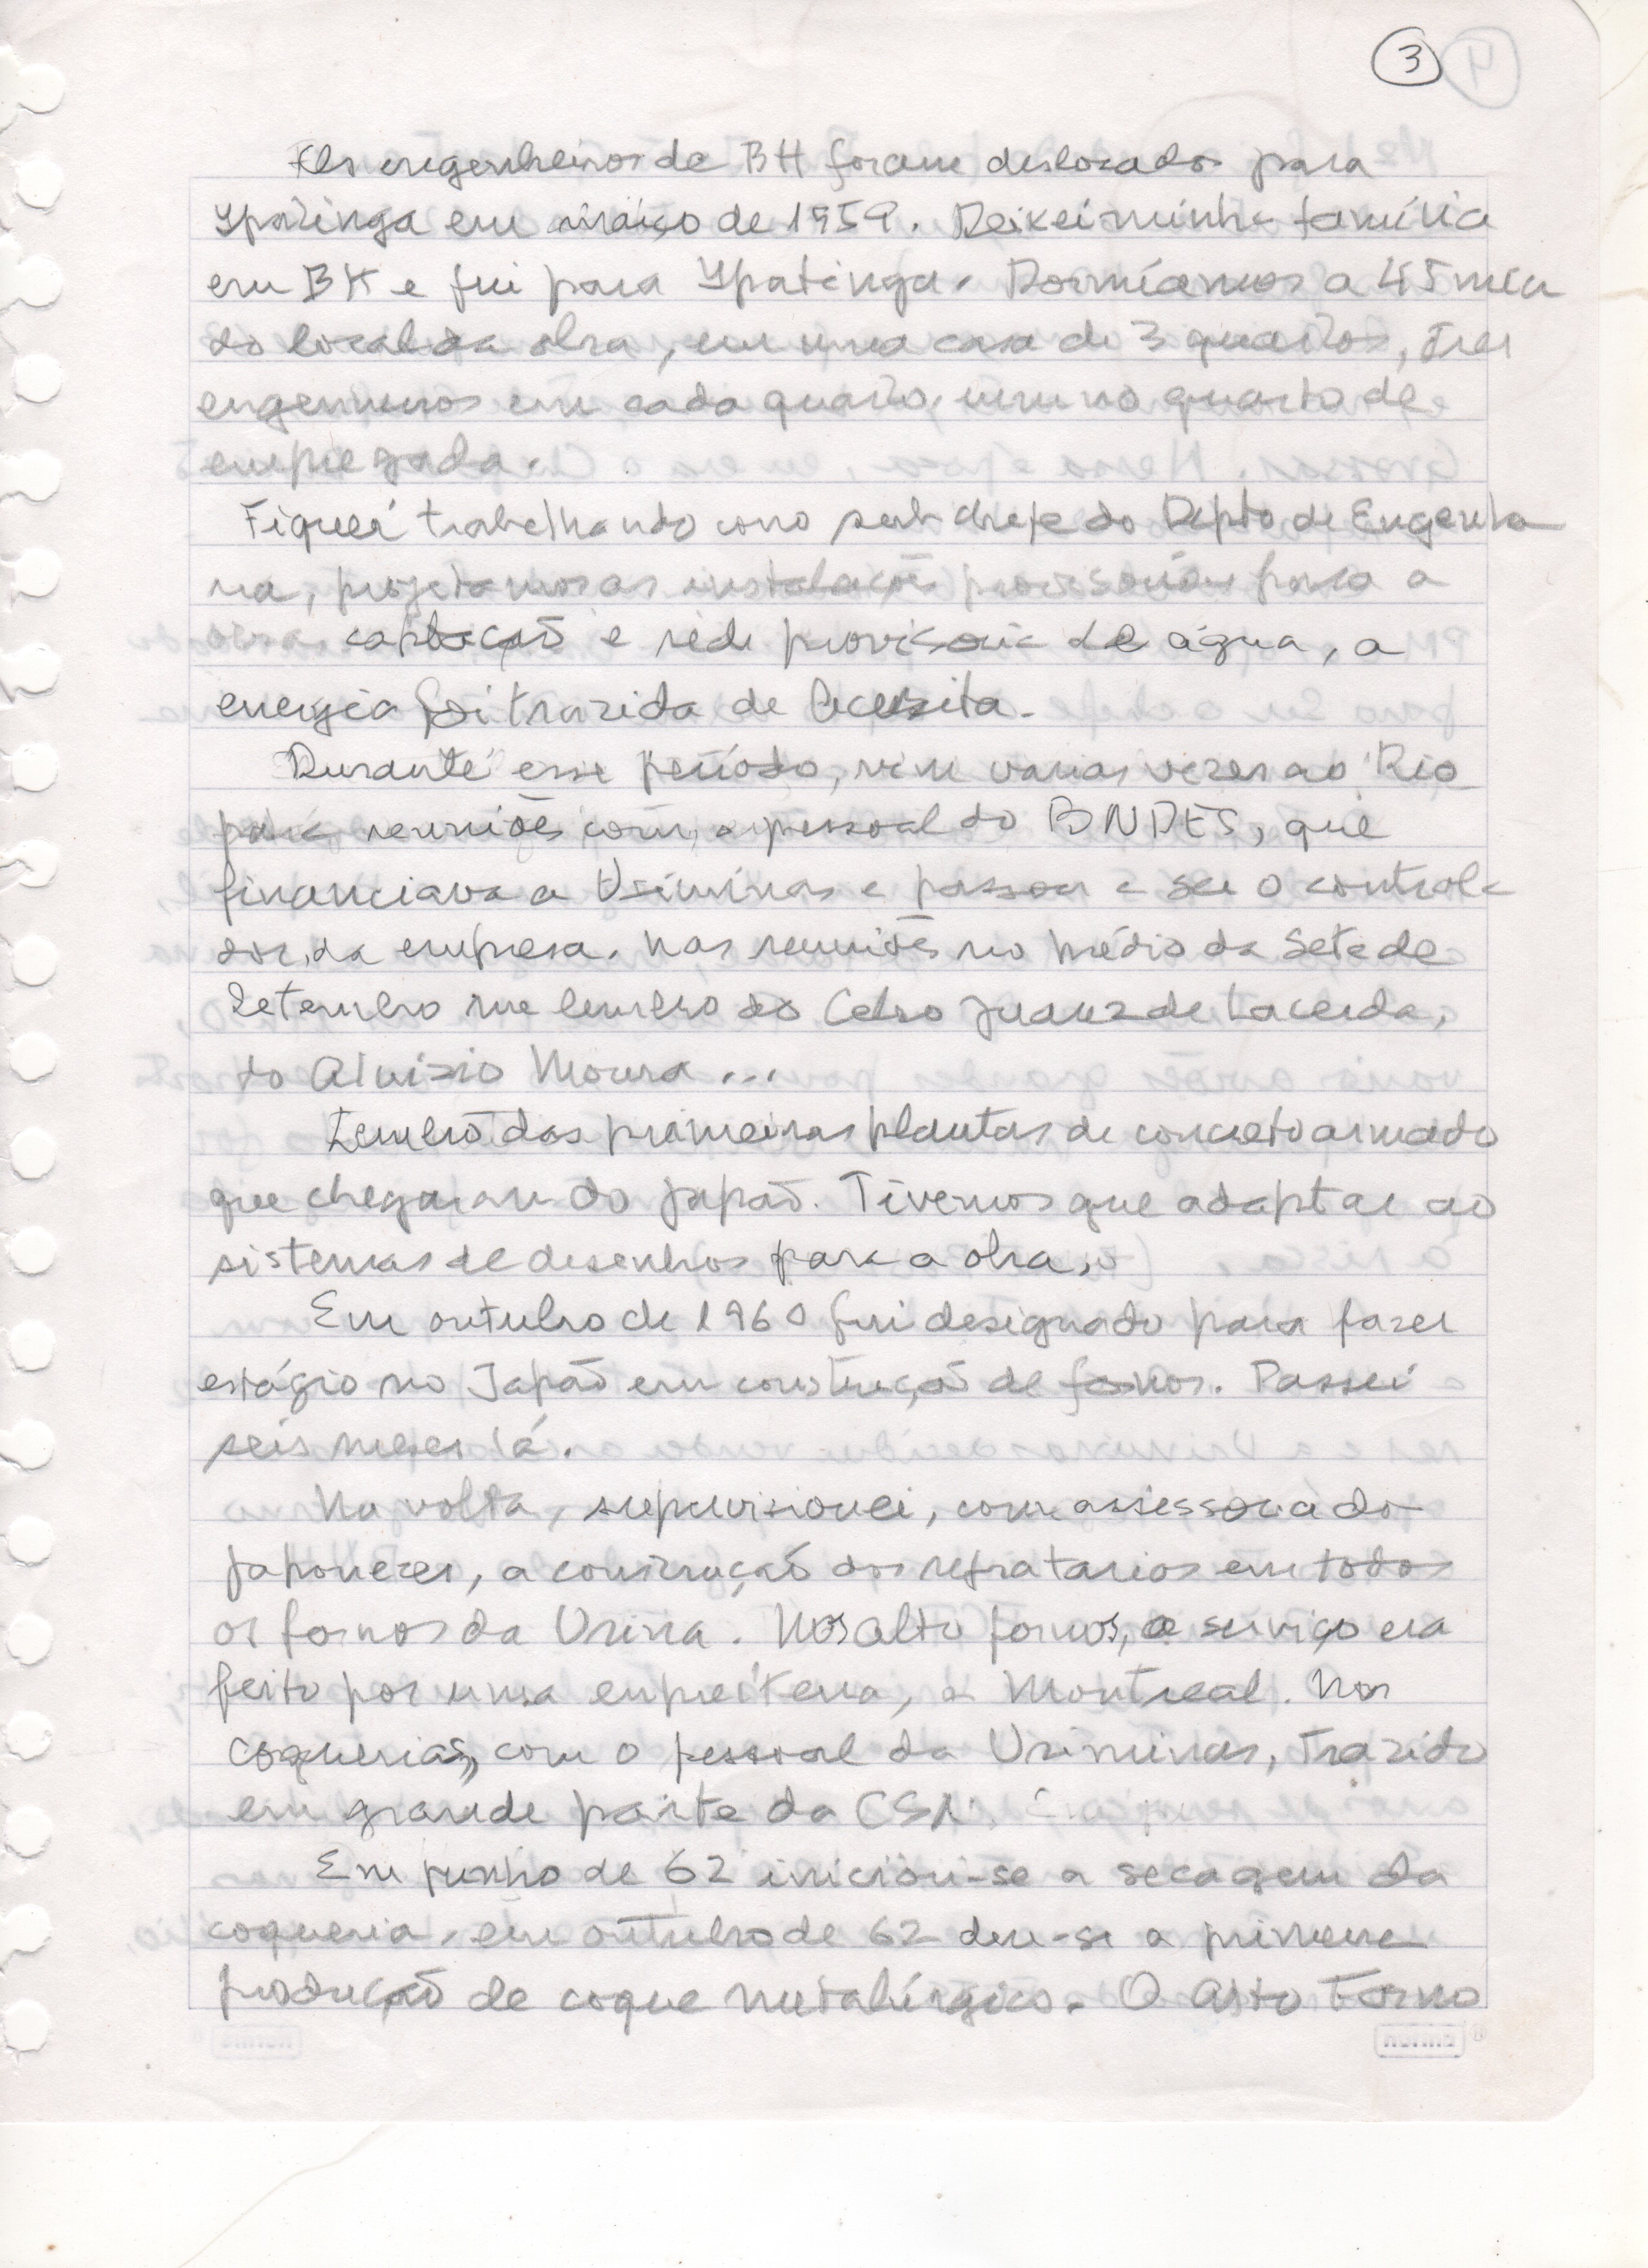 3
Os engenheiros de BH foram deslocados para
Ypatinga em março de 1959. Deixei minha família
em BH e fui para Ypatinga. Dormíamos a 45 min
do local da obra, em uma casa de 3 quartos, tres
engenheiros em cada quarto, um no quarto de
empregada.
Fiquei trabalhando como sub chefe do Depto de Engenha
ria, projetamos as instalações provisórias para a
captação e rede provisoria de água, a
energia foi trazida de Acesita.
Durante esse período, vim varias vezes ao Rio
para reuniões com o pessoal do BNDES, que
financiava a Usiminas e passou a ser o controla
dor da empresa. Nas reuniões no prédio da Sete de
Setembro me lembro do Celso Juarez de Lacerda,
do Aluizio Moura...
Lembro das primeiras plantas de concreto armado
que chegaram do Japão. Tivemos que adaptar ao
sistemas de desenhos para a obra.
Em outubro de 1960 fui designado para fazer
estágio no Japão em construção de fornos. Passei
seis meses lá.
Na volta, supervisionei, com assessoria do
japoneses, a construção dos refratarios em todos
os fornos da Usina. Nos alto fornos, o serviço era
feito por uma empreiteira, a Montreal. Nas
coquerias, com o pessoal da Usiminas, trazido
em grande parte da CSN.
Em junho de 62 iniciou-se a secagem da
coqueria, em outubro de 62 deu-se a primeira
produção de coque metalúrgico. O Alto Forno
norma